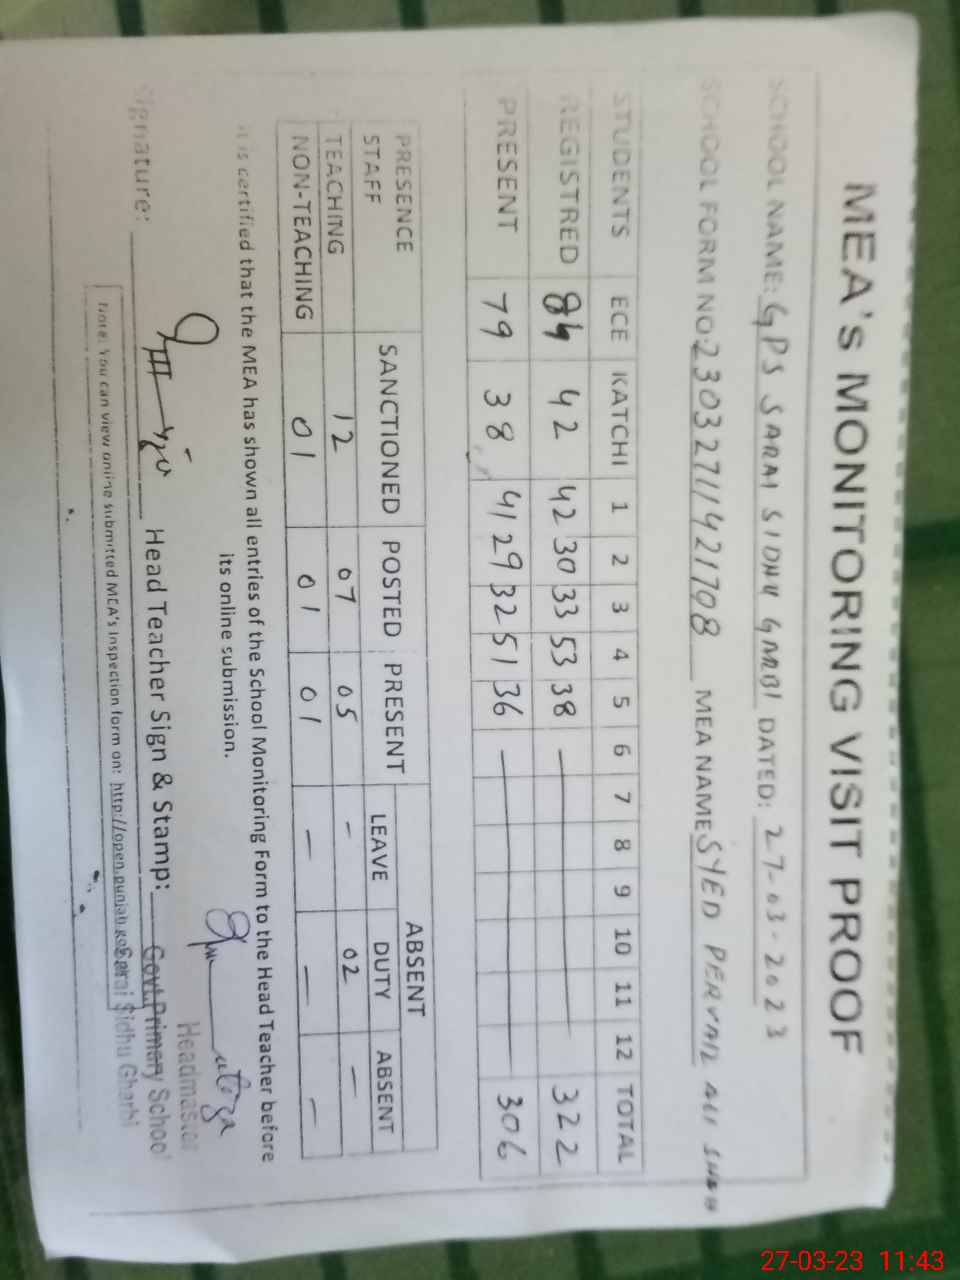 MEA's MONITORING VISIT PROOF
SCHOOL NAME: GPS SARAI SIDHU GMBI DATED: 27-03-2023
SCHOOL FORM NO: 23032711421708 MEA NAME SYED PERVAIZ ALI SHAH
STUDENTS ECE KATCHI 1 2 3 4 5 6 7 8 9 10 11 12 TOTAL
REGISTRED 84 42 42 30 33 53 38 — 322
PRESENT 79 38 41 29 32 51 36 — 306
PRESENCE STAFF SANCTIONED POSTED PRESENT ABSENT
LEAVE DUTY ABSENT
TEACHING 12 07 05 - 02 -
NON-TEACHING 01 01 01 - - -
It is certified that the MEA has shown all entries of the School Monitoring Form to the Head Teacher before
its online submission.
Signature: Head Teacher Sign & Stamp:
Headmaster
Govt. Primary School
Sarai Sidhu Gharbi
Note: You can view online submitted MEA's Inspection form on: http://open.punjab.gov
27-03-23 11:43